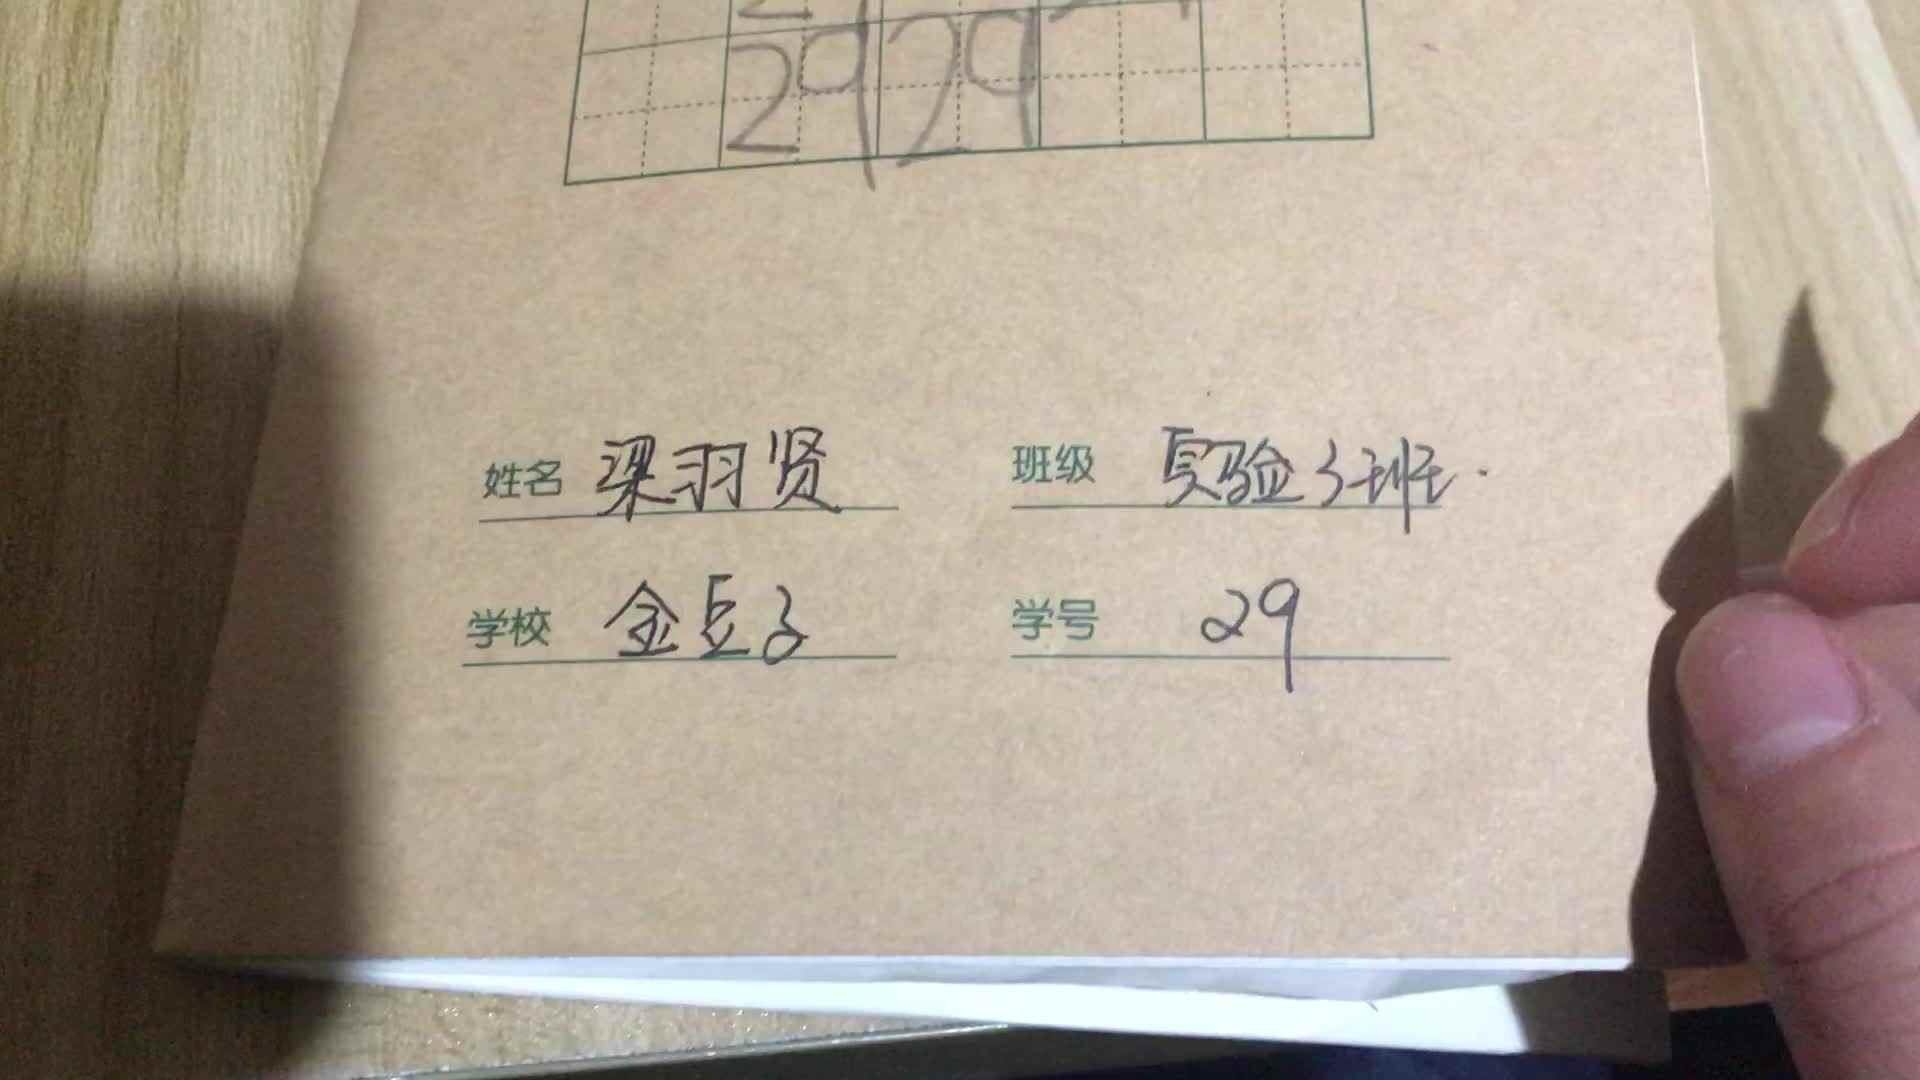 29 29
姓名 梁羽贤 班级 实验3班.
学校 金豆子 学号 29